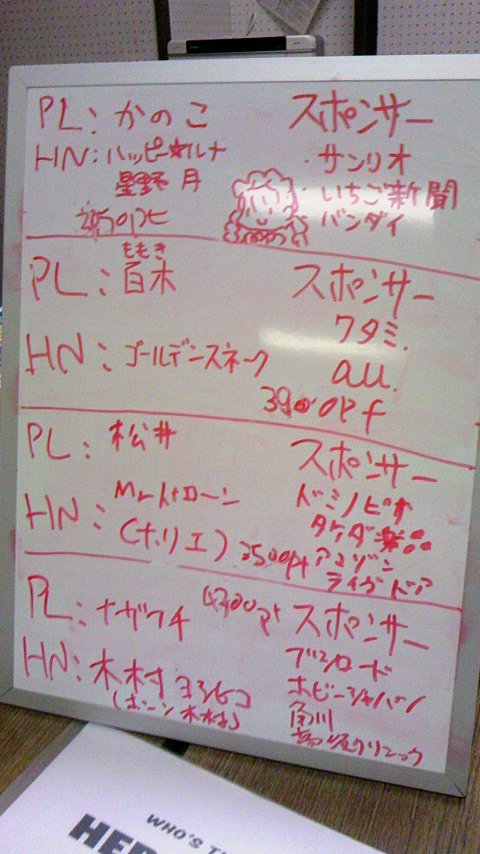 PL: かのこ
HN: ハッピー☆ルナ
星野 月
スポンサー
・サンリオ
・いちご新聞
・バンダイ
ももき
PL: 百木
HN: ゴールデンスネーク
スポンサー
ワタミ.
au.
3900Pt
PL: 松井
HN: Mr.ドローン
(ホリエ)
スポンサー
ドミノピザ
タケダ
アマゾン
ライブドア
PL: ナガフチ
HN: 木村ヨシヒコ
スポンサー
ブシロード
ホビージャパン
角川
クリニック
WHO'S T
HER